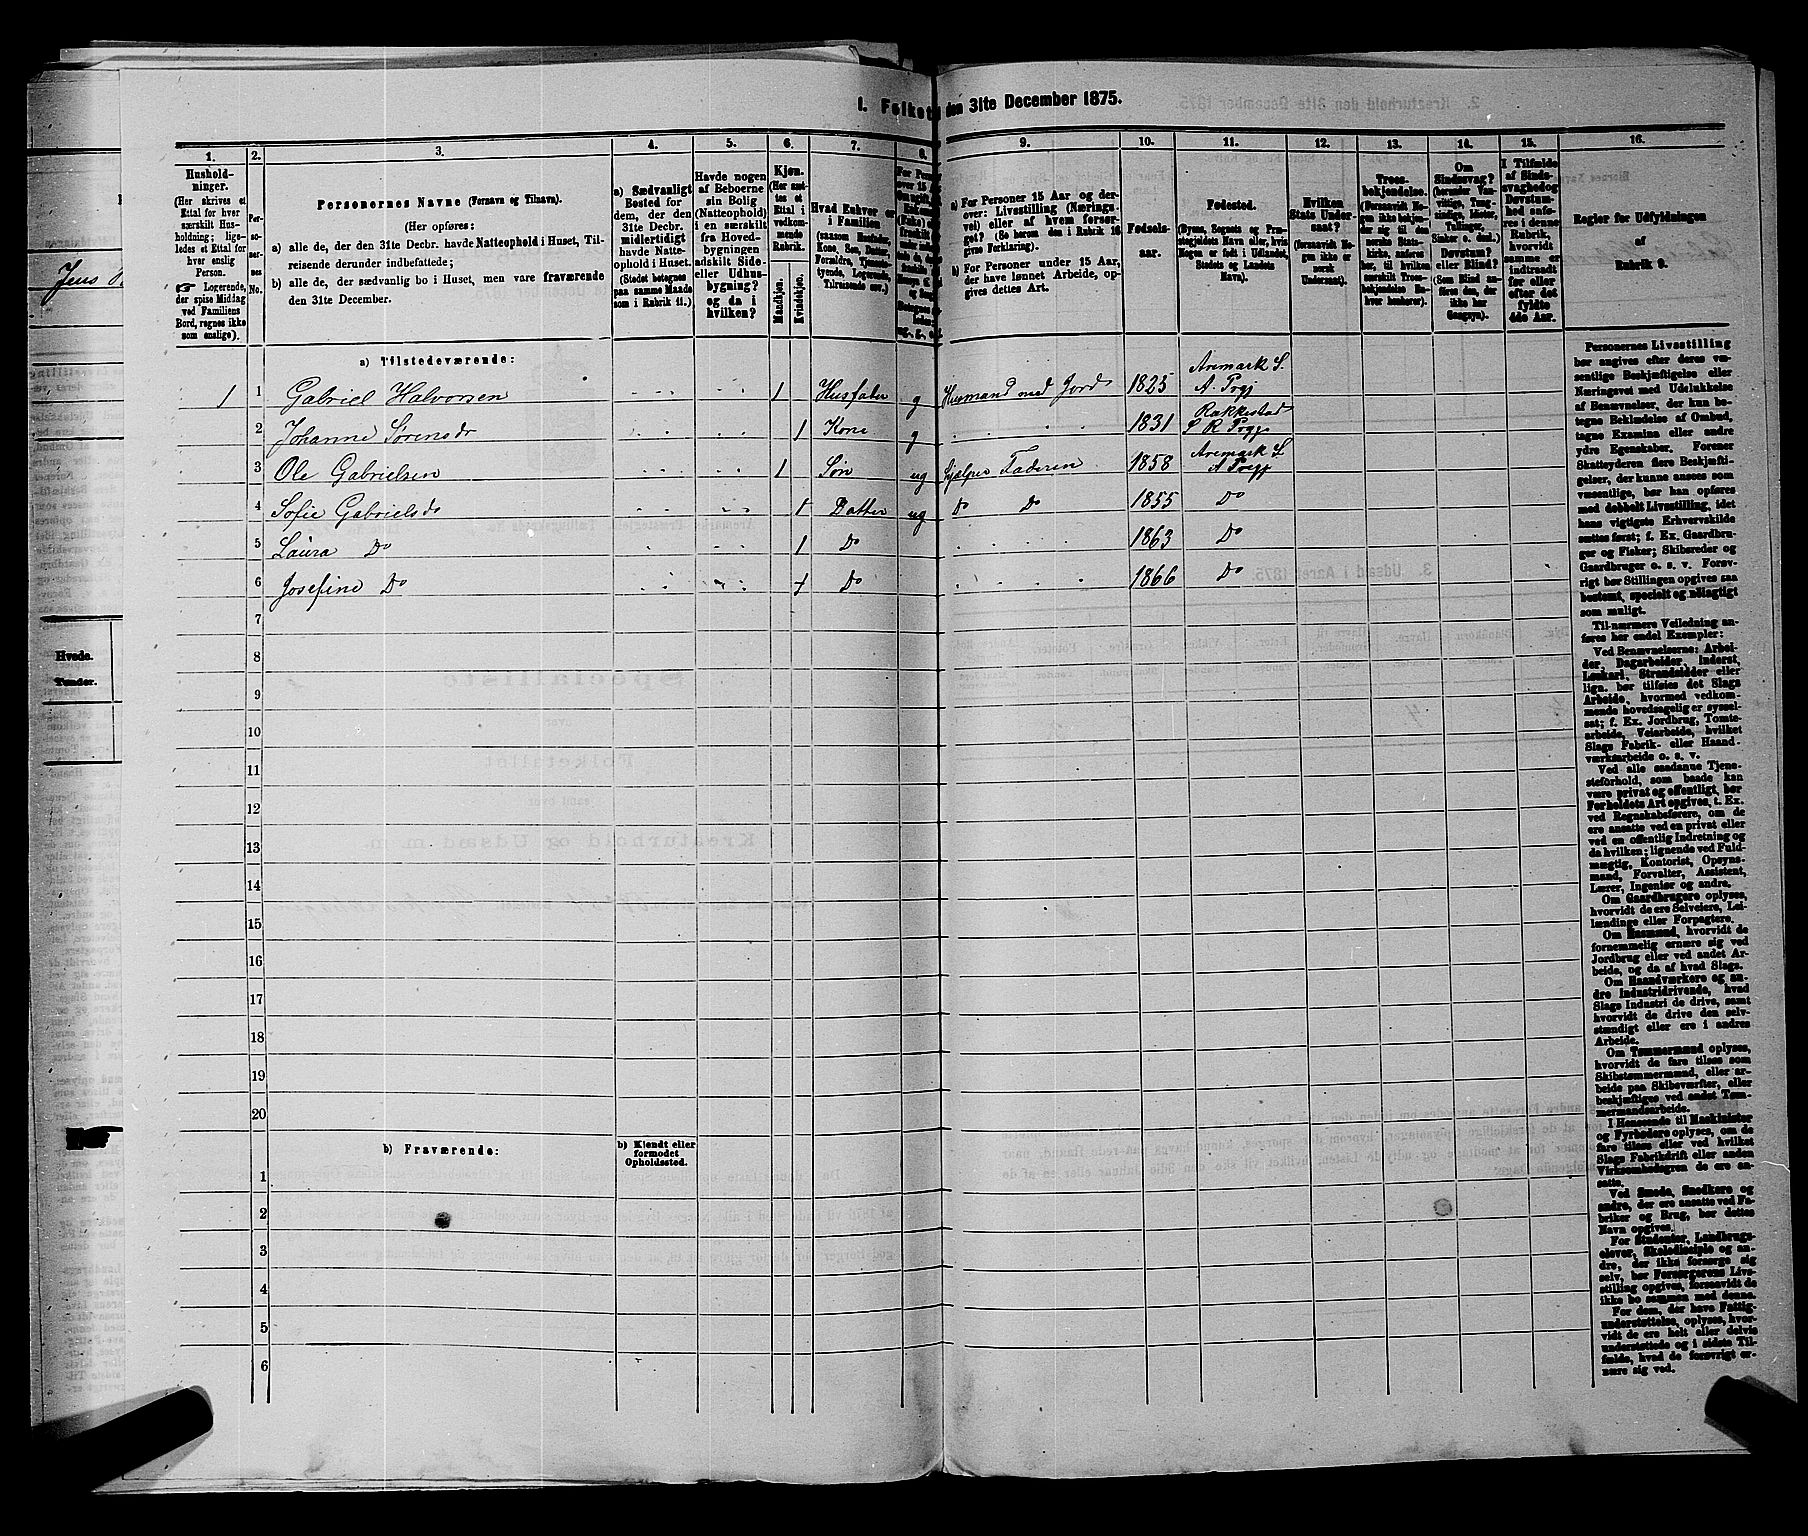 Jens
Hvede.
Tønder.
I. Folket
den 31te December 1875.
1.
Hushold-
ninger.
(Her skrives et
Ettal for hver
særskilt Hus-
holdning; lige-
ledes et Ettal for
hver enslig
Person.
☛ Logerende,
der spise Middag
ved Familiens
Bord, regnes ikke
som enslige).
2.
Per-
so-
ner-
nes
No.
3.
Personernes Navne (Fornavn og Tilnavn).
(Her opføres:
a) alle de, der den 31te Decbr. havde Natteophold i Huset, Til-
reisende derunder indbefattede;
b) alle de, der sædvanlig bo i Huset, men vare fraværende
den 31te December.
4.
a) Sædvanligt
Bosted for
dem, der den
31te Decbr.
midlertidigt
havde Natte-
ophold i Huset.
(Stedet betegnes
paa samme Maade
som i Rubrik 11.)
5.
Havde nogen
af Beboerne
sin Bolig
(Natteophold)
i en særskilt
fra Hoved-
bygningen
adskilt Side-
eller Udhus-
bygning?
og da i
hvilken?
6.
Kjøn.
(Her sæt-
tes et
Ettal i
vedkom-
mende
Rubrik.
Mandkjøn.
Kvindekjøn.
7.
Hvad Enhver er
i Familien
(saasom Husfader,
Kone, Søn, Datter,
Forældre, Tjeneste-
tyende, Logerende,
Tilreisende osv.)
8.
9.
a) For Personer 15 Aar og der-
over: Livsstilling (Nærings-
vei) eller af hvem forsør-
get? (Se herom den i Rubrik 16
givne Forklaring).
b) For Personer under 15 Aar,
der have lønnet Arbeide, op-
gives dettes Art.
10.
Fødsels-
aar.
11.
Fødested.
(Byens, Sognets og Præ-
stegjeldets Navn eller, hvis
Nogen er født i Udlandet,
Stedets og Landets
Navn).
12.
Hvilken
Stats Under-
saat?
(forsaavidt No-
gen ikke er
norsk
Undersaat).
13.
Troes-
bekjendelse.
(Forsaavidt No-
gen ikke hører
til den
norske Stats-
kirke, anføres
her, til hvilken
særskilt Troes-
bekjendelse En-
hver henhører).
14.
Om
Sindssvag?
Døvstum?
eller Blind?
15.
I Tilfælde
af Sinds-
svaghed og
Døvstum-
hed anfø-
res i denne
Rubrik,
hvorvidt
samme er
indtraadt
før eller
efter det
fyldte
4de Aar.
16.
Regler for Udfyldningen
af
Rubrik 9.
a) Tilstedeværende:
1 1 Gabriel Halvorsen 1 Husfader g Husmand med Jord 1825 Aremark S. A. Prgj
2 Johanne Sørensdr 1 Kone g 1831 Rakkestad S R Prgj
3 Ole Gabrielsen 1 Søn ug hjælper Faderen 1858 Aremark S A Prgj
4 Sofie Gabrielsdr 1 Datter ug Do Do 1855 Do
5 Laura Do 1 Do 1863 Do
6 Josefine Do 1 Do 1866 Do
7
8
9
10
11
12
13
14
15
16
17
18
19
20
b) Fraværende:
b) Kjendt eller
formodet
Opholdssted.
1
2
3
4
5
6
Personernes Livsstilling
bør angives efter deres væ-
sentlige Beskjæftigelse eller
Næringsvei med Udelukkelse
af Benævnelser, der kun be-
tegne Beklædelse af Ombud,
tagne Examina eller andre
ydre Egenskaber. Forener
Skatteyderen flere Beskjæfti-
gelser, der kunne ansees som
væsentlige, bør han opføres
med dobbelt Livsstilling, idet
hans vigtigste Erhvervskilde
sættes først; f. Ex. Gaardbru-
ger og Fisker; Skibsreder og
Gaardbruger o. s. v. Forøv-
rigt bør Stillingen opgives saa
bestemt, specielt og nøiagtigt
som muligt.
Til nærmere Veiledning an-
føres her endel Exempler:
Ved Benævnelserne: Arbei-
der, Dagarbeider, Inderst,
Løskarl, Strandsidder eller
lign. bør tilføies det Slags
Arbeide, hvormed vedkom-
mende hovedsagelig er syssel-
sat; f. Ex. Jordbrug, Tomte-
arbeide, Veiarbeide, hvilket
Slags Fabrik- eller Haand-
værksarbeide o. s. v.
Ved alle saadanne Tjene-
steforhold, som baade kan
være privat og offentligt, bør
Forholdets Art opgives, t. Ex.
ved Regnskabsførere, om de
ere ansatte ved en privat eller
ved en offentlig Indretning og
da hvilken; lignende ved Fuld-
mægtig, Kontorist, Opsyns-
mand, Forvalter, Assistent,
Lærer, Ingeniør og andre.
Om Gaardbrugere oplyses,
hvorvidt de ere Selveiere, Lei-
lændinge eller Forpagtere.
Om Husmænd, hvorvidt de
fornemmelig ernære sig ved
Jordbrug eller ved andet Ar-
beide, og da af hvad Slags.
Om Haandværkere og an-
dre Industridrivende, hvad
Slags Industri de drive, samt
hvorvidt de drive den selv-
stændigt eller ere i andres
Arbeide.
Om Tømmermænd oplyses,
hvorvidt de fare tilsøs som
Skibstømmermænd, eller ar-
beide paa Skibsværfter, eller
beskjæftiges ved andet Tøm-
mermandsarbeide.
I Henseende til Maskinister
og Fyrbødere oplyses, om de
fare tilsøs eller ved hvilket
Slags Fabrikdrift eller anden
Virksomhed de ere an-
satte.
Ved Smede, Snedkere og
andre, der ere ansatte ved Fa-
briker og Brug, bør dettes
Navn opgives.
For Studenter, Landbrugs-
elever, Skoledisciple og an-
dre, der ikke forsørge sig
selv, bør Forsørgerens Livs-
stilling opgives, forsaavidt de
ikke bo sammen med denne.
For dem, der have Fattig-
understøttelse, oplyses, hvor-
vidt de ere helt eller delvis
understøttede og i sidste Til-
fælde, hvad de forøvrigt er-
nære sig ved.